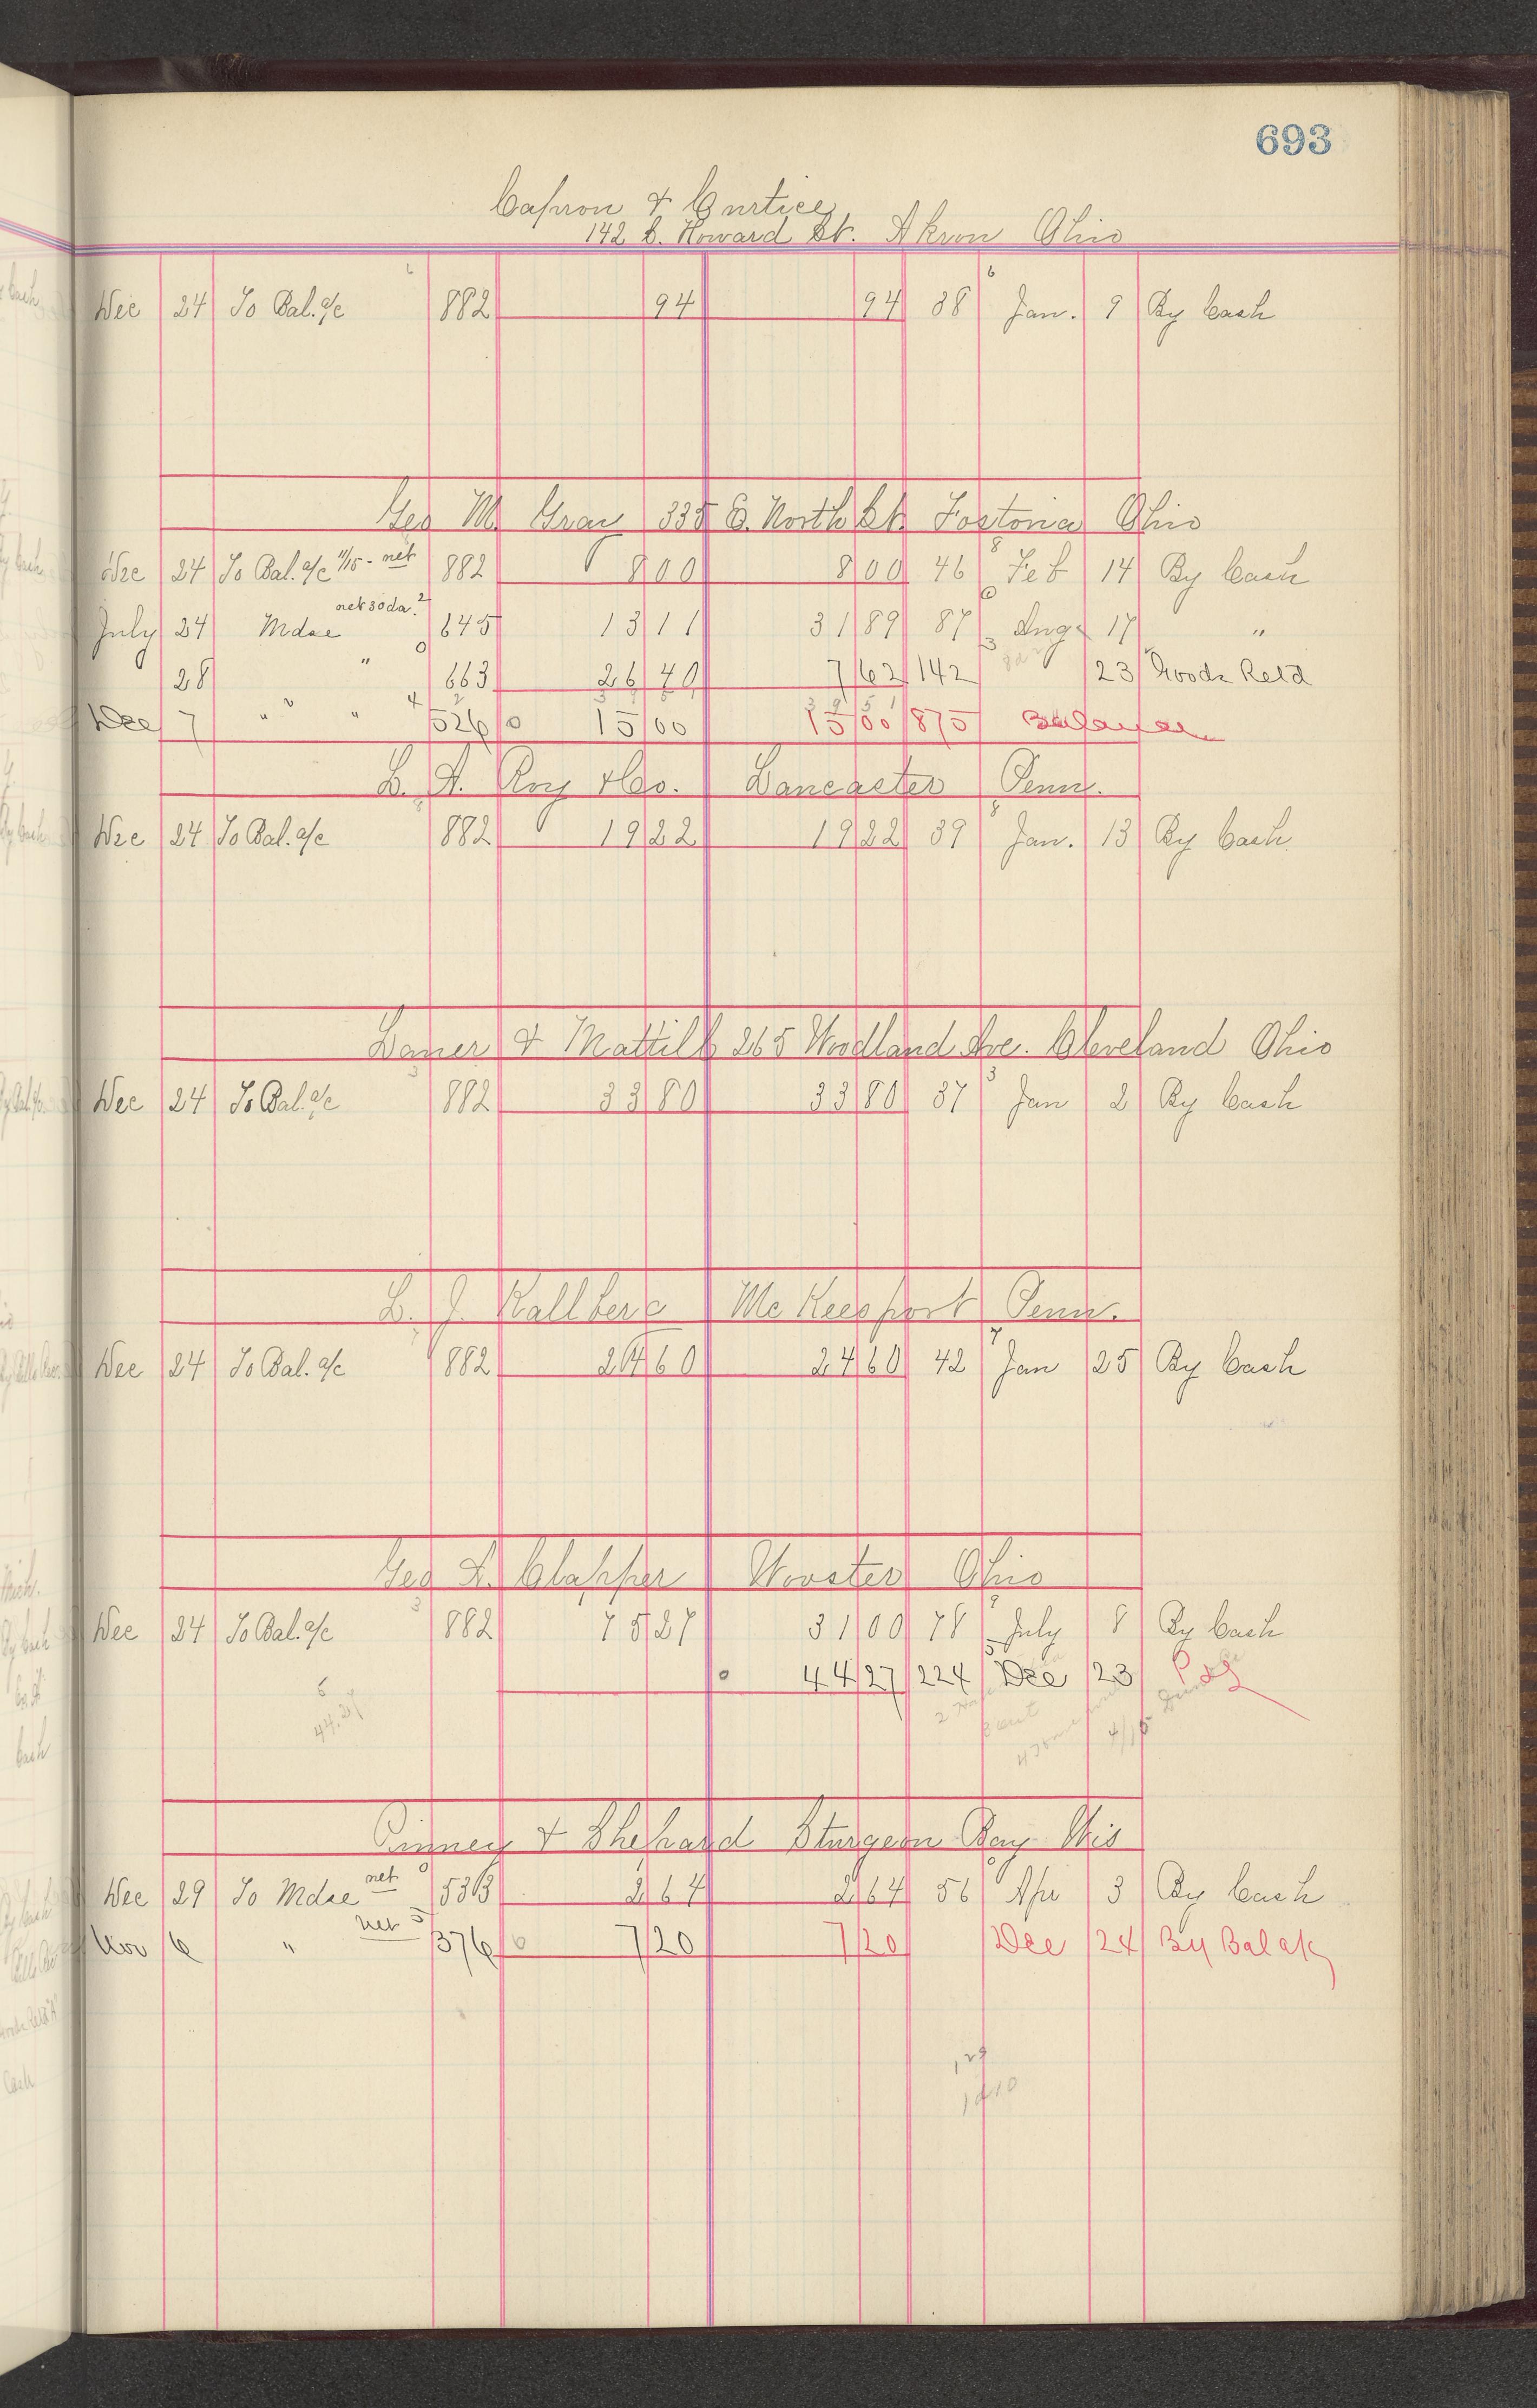 693
Capron & Curtice
142 S. Howard St. Akron Ohio
Dec 24 To Bal. a/c 882 94 94 38 Jan. 9 By Cash
Geo M. Gray 335 E. North St. Fostoria Ohio
Dec 24 To Bal. a/c 11/15 - net 882 8 00 8 00 46 Feb 14 By Cash
July 24 Mdse net 30 da. 645 13 11 31 89 87 Aug 17 "
28 " 663 26 40 7 62 142 23 Goods Retd
Dec 7 " " 526 15 00 15 00 875 Balance
L. A. Roy & Co. Lancaster Penn.
Dec 24 To Bal. a/c 882 19 22 19 22 39 Jan. 13 By Cash
& Mattill 265 Woodland Ave. Cleveland Ohio
Dec 24 To Bal. a/c 882 33 80 33 80 37 Jan 2 By Cash
L. J. Kallberg McKeesport Penn.
Dec 24 To Bal. a/c 882 24 60 24 60 42 Jan 25 By Cash
Geo A. Clapper Wooster Ohio
Dec 24 To Bal. a/c 882 75 27 31 00 78 July 8 By Cash
44 27 224 Dec 23 P&L
44.27
Pinney & Shepard Sturgeon Bay Wis
Dec 29 To Mdse net 536 2 64 2 64 56 Apr 3 By Cash
Nov 6 " net 376 7 20 7 20 Dec 24 By Bal a/c